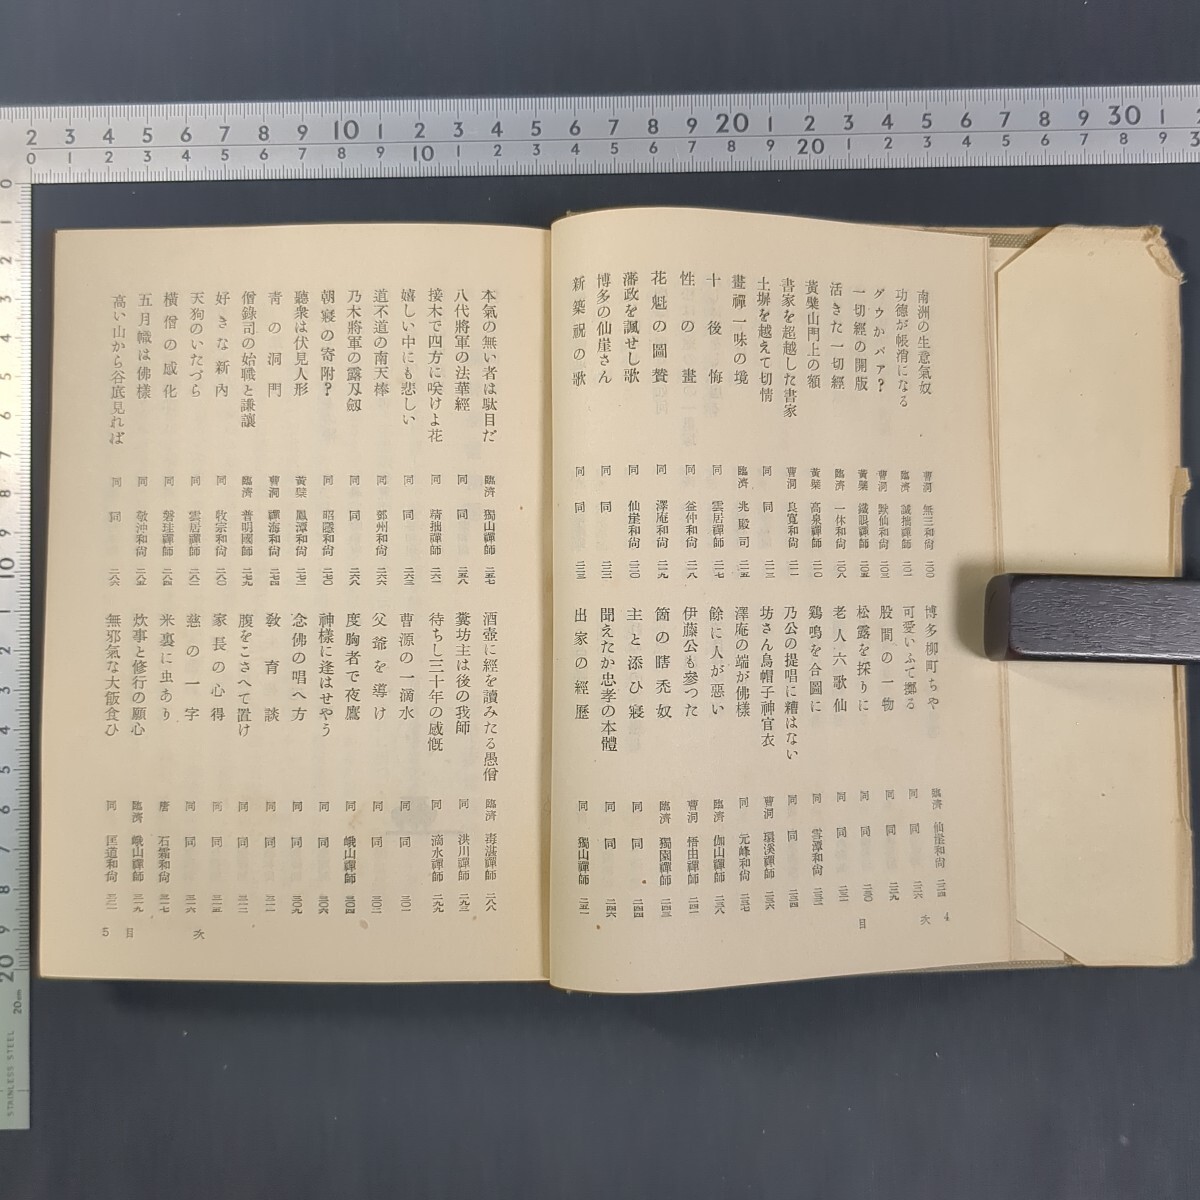 南洲の生意氣奴 曹洞 無三和尙 二〇〇
功德が帳消になる 臨濟 誠拙禪師 二〇一
グウかパア? 曹洞 默仙和尙 二〇三
一切經の開版 黃檗 鐵眼禪師 二〇五
活きた一切經 臨濟 一休和尙 二〇八
黃檗山門上の額 黃檗 高泉禪師 二一〇
書家を超越した書家 曹洞 良寬和尙 二一一
土塀を越えて切情 同
畫禪一味の境 臨濟 兆殿司 二一五
十後悔 同 雲居禪師 二一七
性の畫 同 釜仲和尙 二一八
花魁の圖賛 同 澤庵和尙 二一九
藩政を諷せし歌 同 仙崖和尙 二二〇
博多の仙崖さん 同 同 二二二
新築祝の歌 同 同 二二三
博多柳町ちや 臨濟 仙崖和尙 二二四
可愛いふて擲る 同 同 二二六
股間の一物 同 同 二二九
松露を採りに 同 同 二三〇
老人六歌仙 同 同 二三一
鷄鳴を合圖に 同 雪潭和尙 二三二
乃公の提唱に糟はない 同 同 二三四
坊さん烏帽子神官衣 曹洞 環溪禪師 二三六
澤庵の端が佛樣 同 元峰和尙 二三七
餘に人が惡い 臨濟 伽山禪師 二三八
伊藤公も參つた 曹洞 悟由禪師 二四一
箇の瞎禿奴 臨濟 獨園禪師 二四三
主と添ひ寢 同 同 二四四
聞えたか忠孝の本體 同 同 二四六
出家の經歷 同 獨山禪師 二五一
目次 4
本氣の無い者は駄目だ 臨濟 獨山禪師 二五七
八代將軍の法華經 同 同 二五八
接木で四方に咲けよ花 同 精拙禪師 二六一
嬉しい中にも悲しい 同 同 二六三
道不道の南天棒 同 鄧州和尙 二六六
乃木將軍の露刄劔 同 同 二六八
朝寢の寄附? 同 昭隱和尙 二七〇
聽衆は伏見人形 黃檗 鳳潭和尙 二七二
靑の洞門 曹洞 禪海和尙 二七四
僧錄司の始職と謙讓 臨濟 普明國師 二七九
好きな新內 同 牧宗和尙 二八〇
天狗のいたづら 同 雲居禪師 二八二
橫僧の感化 同 盤珪禪師 二八四
五月幟は佛樣 同 敬沖和尙 二八五
高い山から谷底見れば 同 同 二八六
酒壺に經を讀みたる愚僧 臨濟 毒湛禪師 二八八
糞坊主は後の我師 同 洪川禪師 二九三
待ちし三十年の感慨 同 滴水禪師 二九九
曹源の一滴水 同 同 三〇一
父爺を導け 同 同 三〇二
度胸者で夜鷹 同 峨山禪師 三〇四
神樣に逢はせやう 同 同 三〇六
念佛の唱へ方 同 同 三〇九
敎育談 同 同 三一一
腹をこさへて置け 同 同 三一二
家長の心得 同 同 三一五
慈の一字 同 同 三一六
米裏に虫あり 唐 石霜和尙 三一七
炊事と修行の願心 臨濟 峨山禪師 三一九
無邪氣な大飯食ひ 同 匡道和尙 三二一
目次 5
2 3 4 5 6 7 8 9 10 1 2 3 4 5 6 7 8 9 20 1 2 3 4 5 6 7 8 9 30 1 2
0 1 2 3 4 5 6 7 8 9 10 1 2 3 4 5 6 7 8 9 20 1 2 3 4 5 6 7 8 9 3
20cm
STAINLESS STEEL